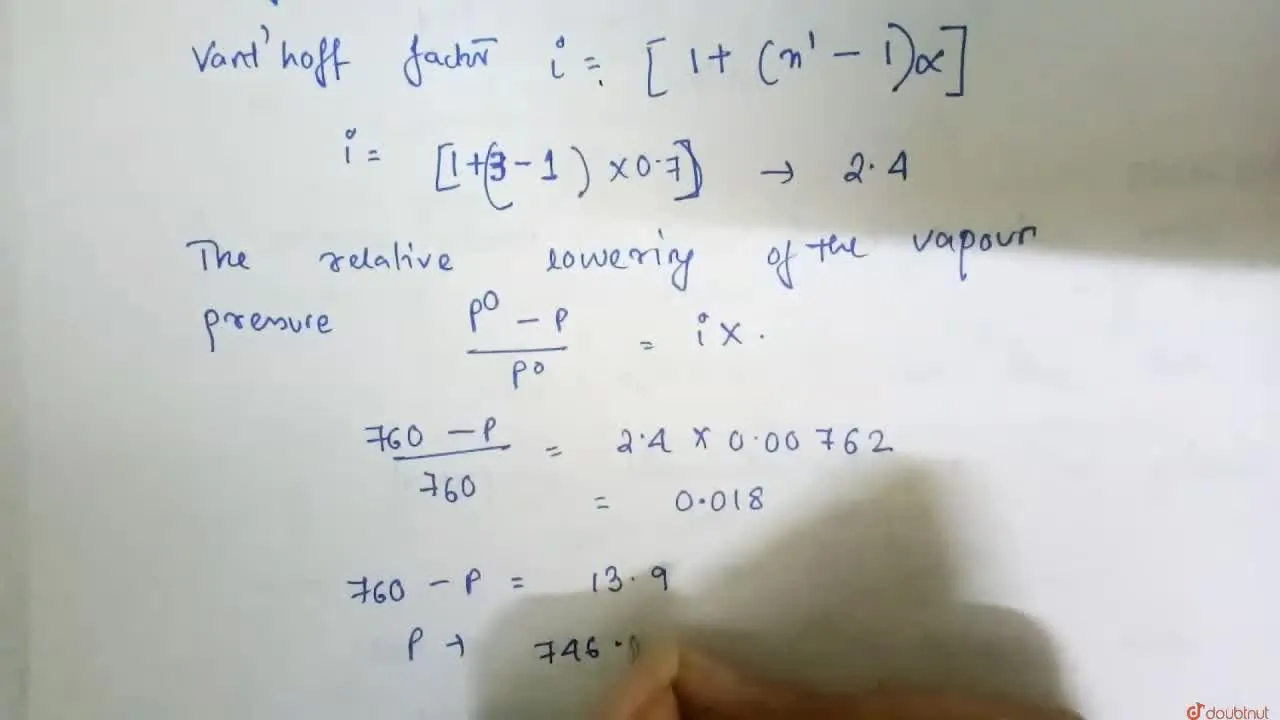 Vant'hoff factor i = [1 + (n' - 1)α]
i = [1+(3-1) × 0.7] → 2.4
The relative lowering of the vapour
pressure P⁰ - P / P⁰ = i x.
760 - P / 760 = 2.4 × 0.00762
= 0.018
760 - P = 13.9
P → 746.
doubtnut